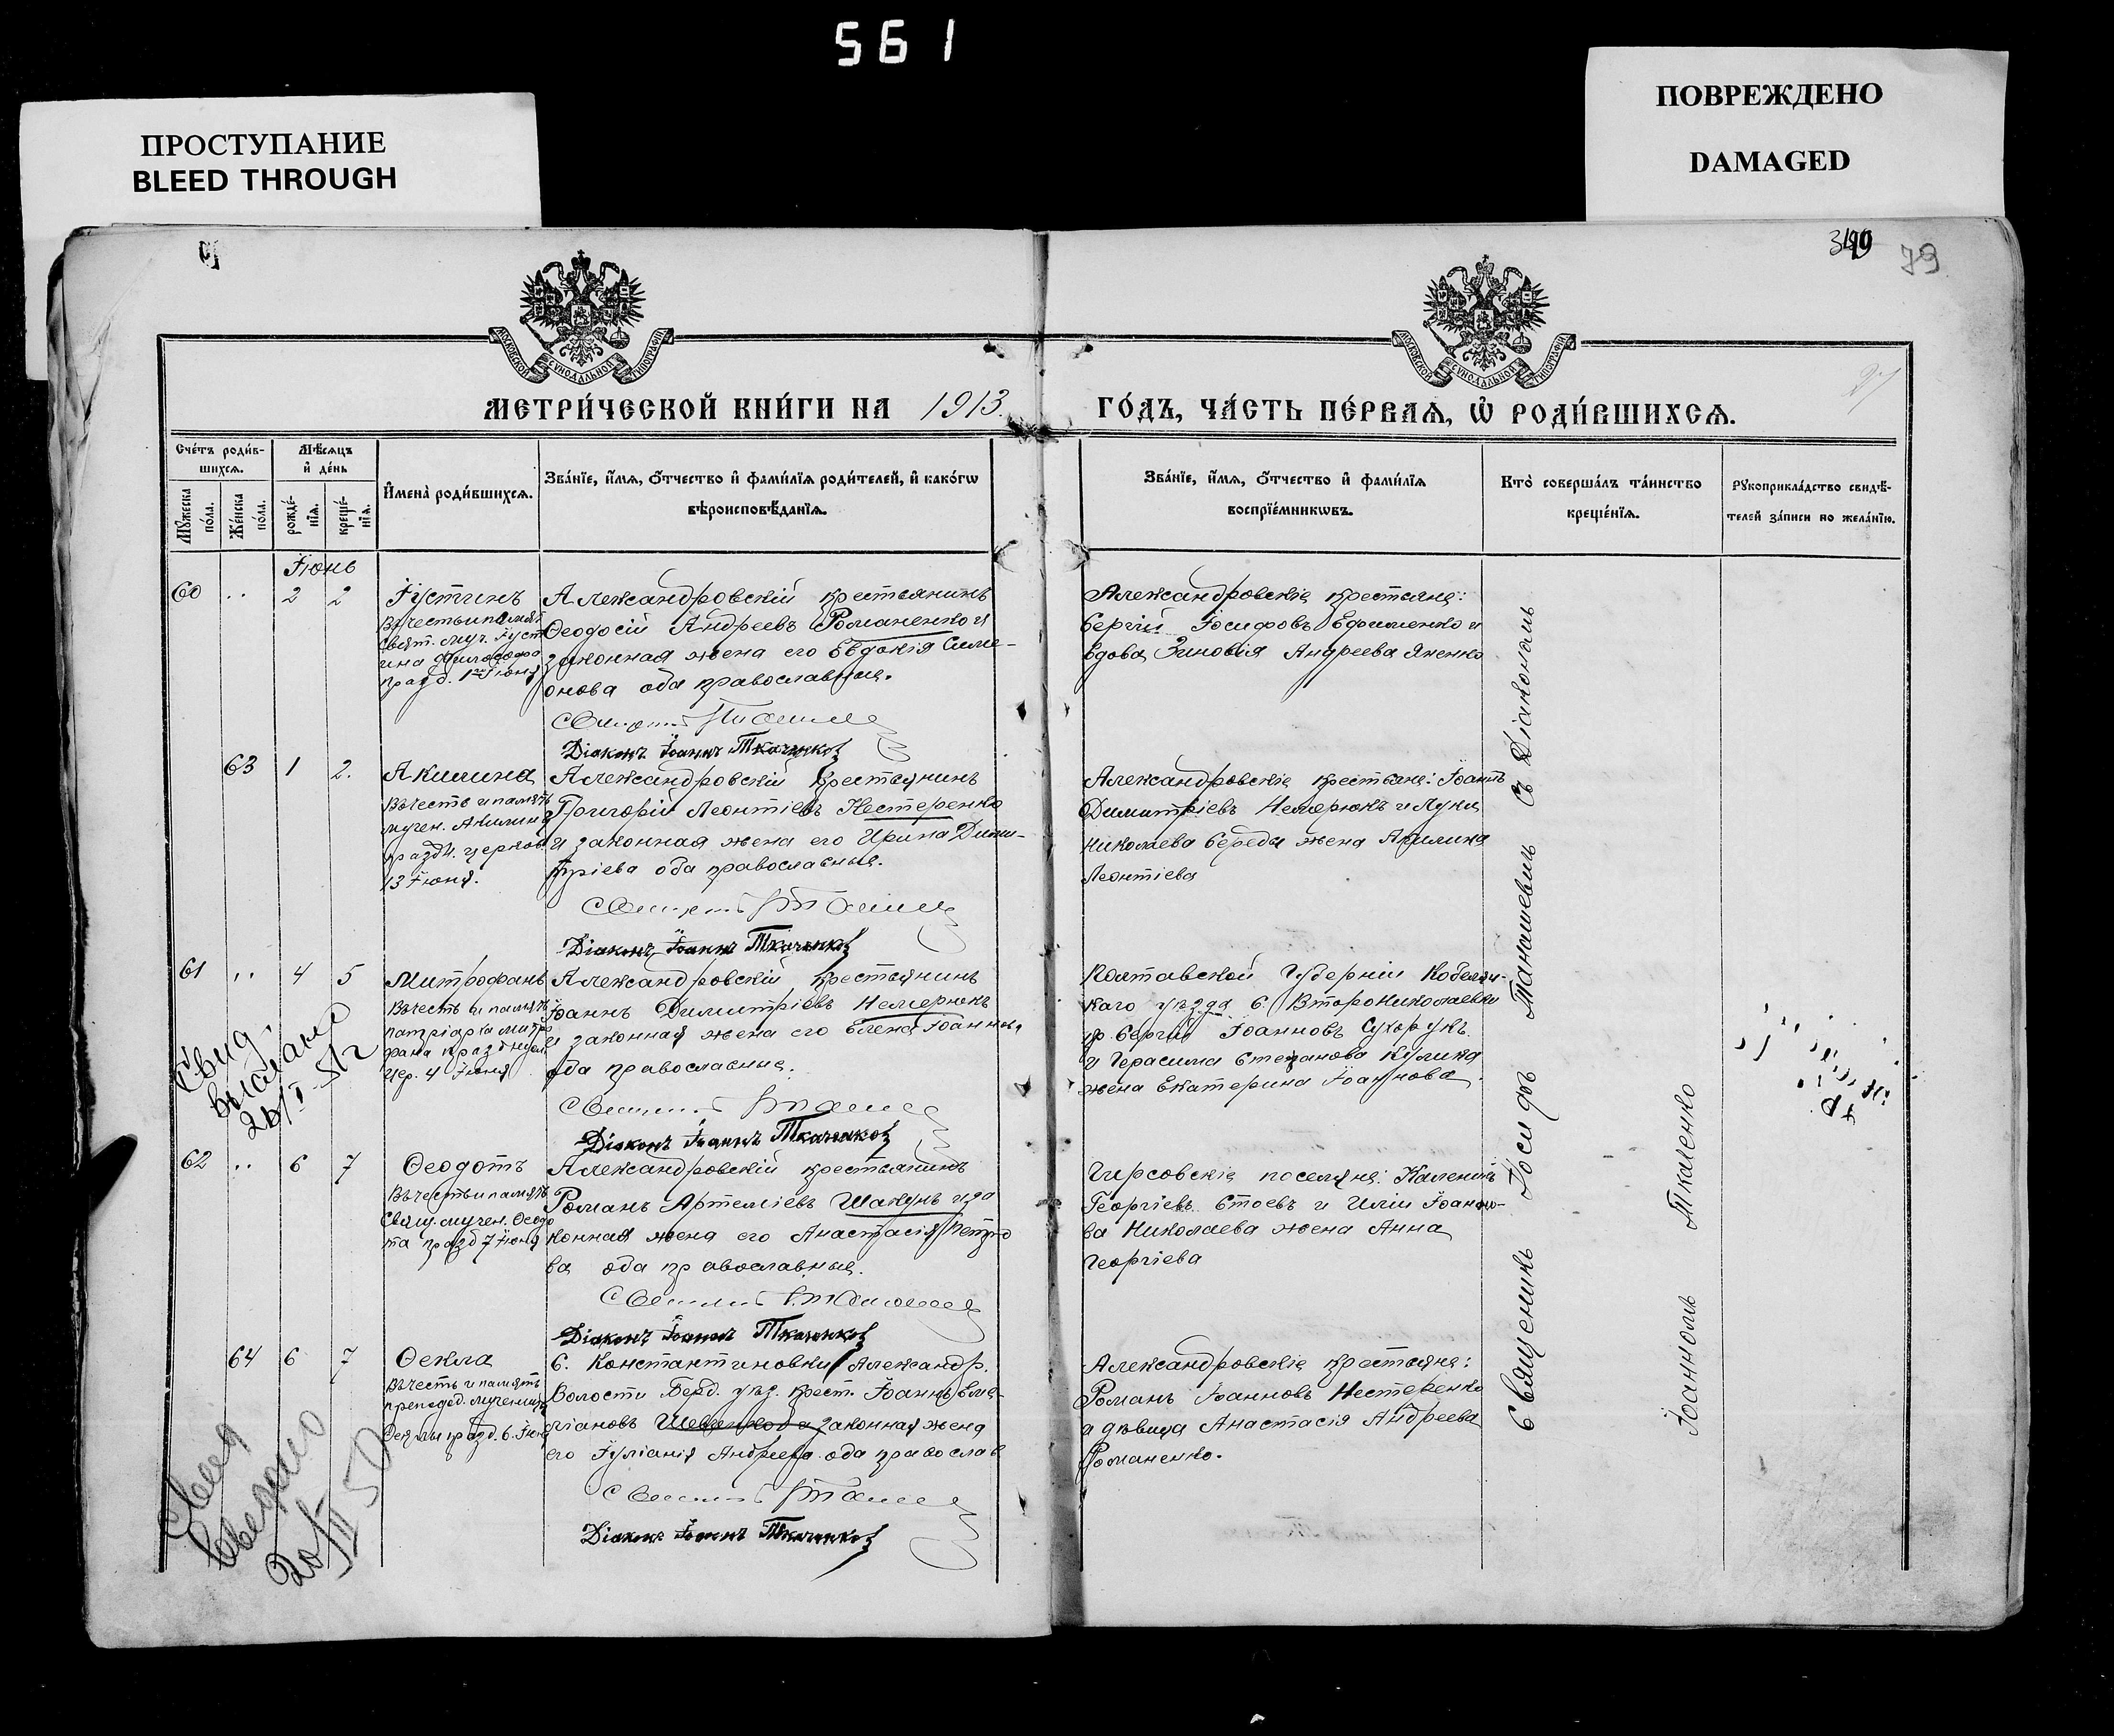 561
ПРОСТУПАНИЕ
BLEED THROUGH
ПОВРЕЖДЕНО
DAMAGED
79
27
МОСКОВСКОЙ СѴНОДАЛЬНОЙ ТИПОГРАФІИ
МОСКОВСКОЙ СѴНОДАЛЬНОЙ ТИПОГРАФІИ
МЕТРИ́ЧЕСКОЙ КНИ́ГИ НА 1913.
ГО́ДЪ, ЧА́СТЬ ПЕ́РВАѦ, Ѡ҆ РОДИ́ВШИХСѦ.
Сче́тъ роди́в-
шихсѧ.
Мꙋ́жеска
по́ла.
Же́нска
по́ла.
Мѣ́сѧцъ
и҆ де́нь
рожде́-
нїѧ.
креще́-
нїѧ.
И҆мена̀ роди́вшихсѧ.
Зва́нїе, и҆́мѧ, ѻ҆́тчество и҆ фами́лїѧ роди́телей, и҆ како́гѡ
вѣроисповѣ́данїѧ.
Зва́нїе, и҆́мѧ, ѻ҆́тчество и҆ фами́лїѧ
воспрїе́мникѡвъ.
Кто̀ соверша́лъ та́инство
креще́нїѧ.
Рꙋкоприкла́дство свидѣ́-
телей за́писи по жела́нїю.
Іюнь
60 .. 2 2
Іустинъ
Въ честь и памят
Свят. муч. Іуст
ина Философа
празд. 1го Іюня
Александровскій крестьянинъ
Ѳеодосій Андреевъ Романенко и
законная жена его Евдокія Симе-
онова оба православные.
Діаконъ Іоаннъ Ткаченко
Александровскіе крестьяне:
Сергій Іосифовъ Ефименко и
вдова Зиновія Андреева Яненко
63 1 2.
Акилина
Въ честь и память
мучен. Акилины
праздн. церков.
13 Іюня.
Александровскій крестьянинъ
Григорій Леонтіевъ Нестеренко
и законная жена его Ирина Дими-
тріева оба православные.
Діаконъ Іоаннъ Ткаченко
Александровскіе крестьяне: Іоаннъ
Димитріевъ Немерюкъ и Луки
Николаева Береды жена Акилина
Леонтіева
61 .. 4 5
Митрофанъ
Въ честь и память
патріарха Митро
фана празднуем
цер. 4 Іюня
Александровскій крестьянинъ
Іоаннъ Димитріевъ Немерюкъ
и законная жена его Елена Іоаннова
оба православные.
Діаконъ Іоаннъ Ткаченко
Полтавской Губерніи Кобеляк-
каго уѣзда с. Второниколаевки
кр. Сергій Іоанновъ Сухорукъ
и Герасима Степанова Кулика
жена Екатерина Іоаннова.
Свид.
выслано
62 .. 6 7
Ѳеодотъ
Въ честь и память
Свящ. мучен. Ѳеодо
та празд 7 Іюня
Александровскій крестьянинъ
Романъ Артеміевъ Шакунъ и за
конная жена его Анастасія Петро
ва оба православные.
Діаконъ Іоаннъ Ткаченко
Гирсовскіе поселяне: Каленикъ
Георгіевъ Стоевъ и Иліи Іоанно-
ва Николаева жена Анна
Георгіева
64 6 7
Ѳекла
Въ честь и память
преподоб. мученицы
Ѳеклы празд. 6. Іюн
С. Константиновки Александр.
Волости Берд. уѣз. крест. Іоаннъ Еме-
ліановъ законная жена
его Іуліанія Андреева оба православ
Діаконъ Іоаннъ Ткаченко
Александровскіе крестьяне:
Романъ Іоанновъ Нестеренко
а дѣвица Анастасія Андреева
Романенко.
Священникъ Іосифъ Танашевичъ съ Діакономъ
Іоанномъ Ткаченко